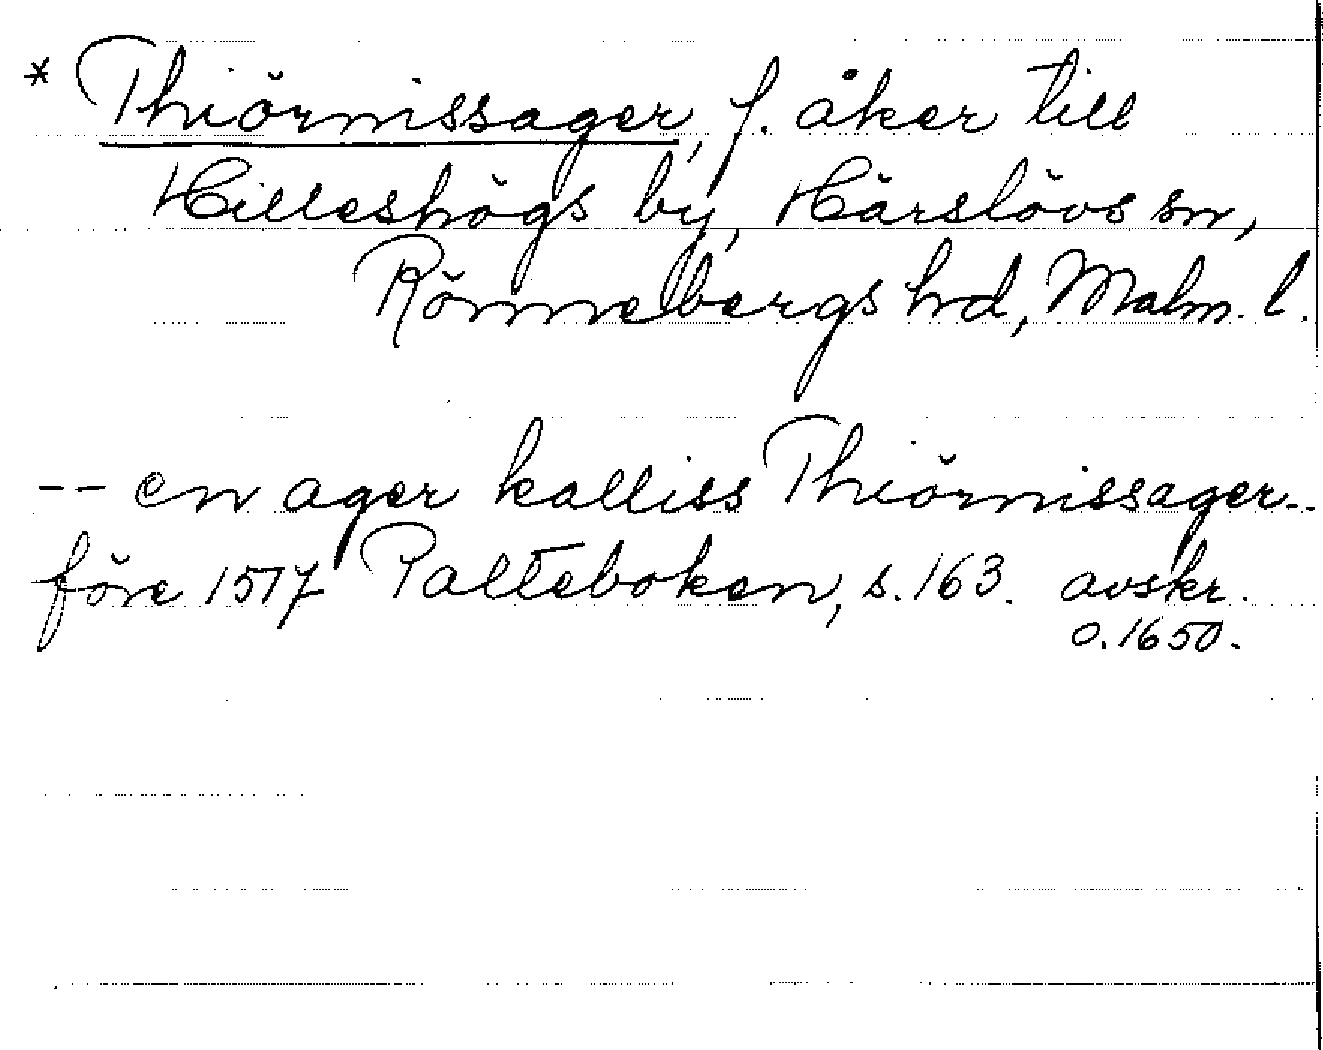 * Thiörnissager, f. åker till
Hilleshögs by, Härslövs sn,
Rönnebergs hrd, Malm. l.
-- en ager kalliss Thiörnissager--
före 1517 Palteboken, s. 163. avskr.
o. 1650.